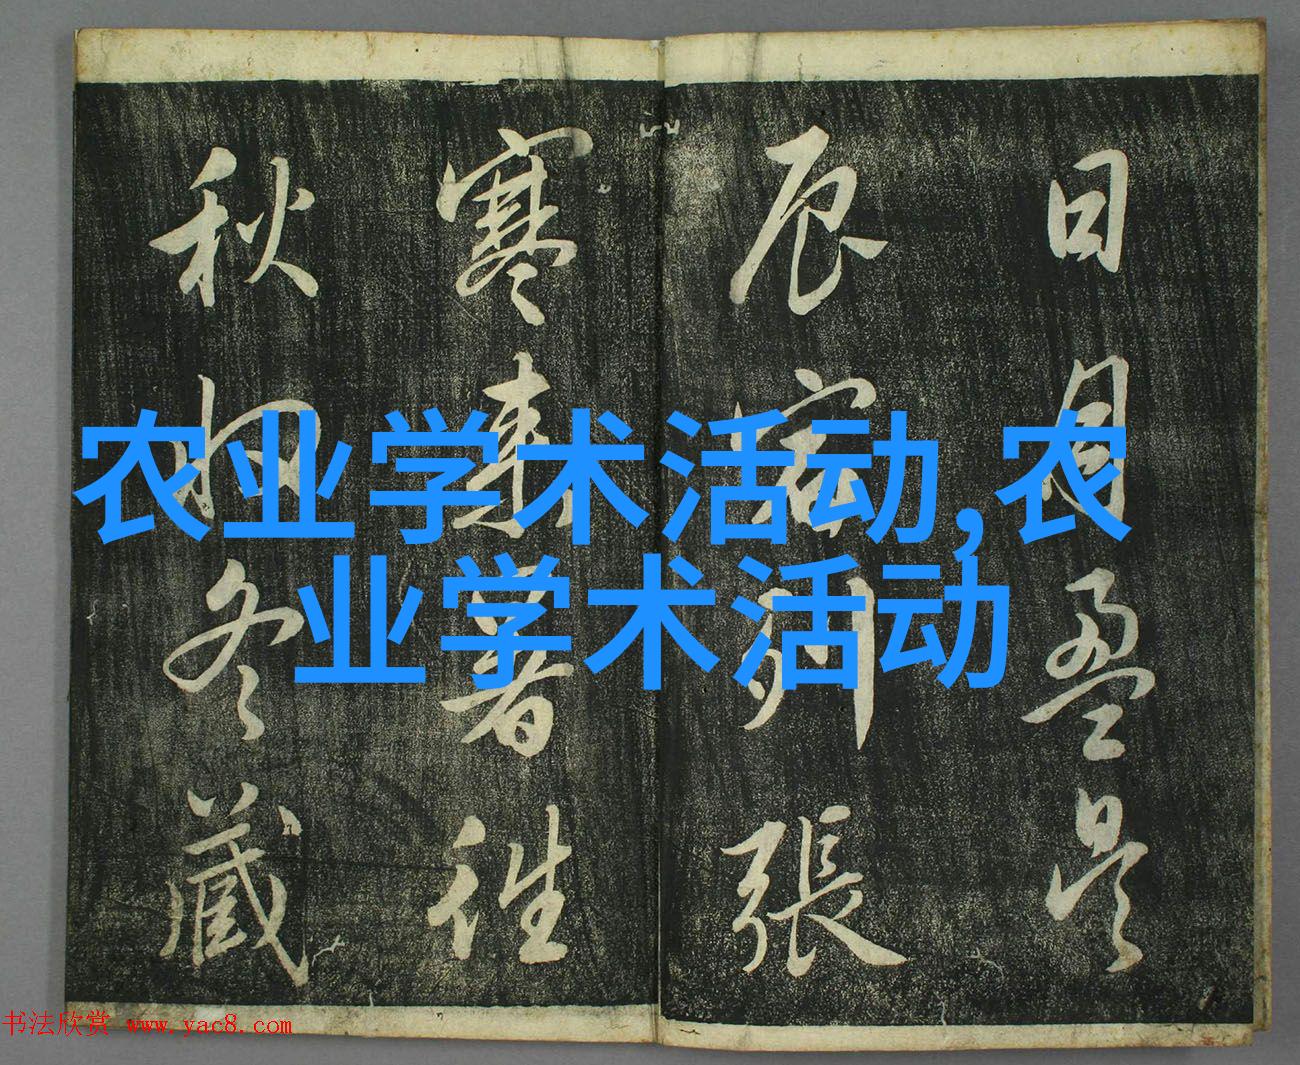 日月盈昃
辰宿列張
寒来暑往
秋收冬藏
农业学术活动,农
业学术活动
书法欣赏 www.yac8.com